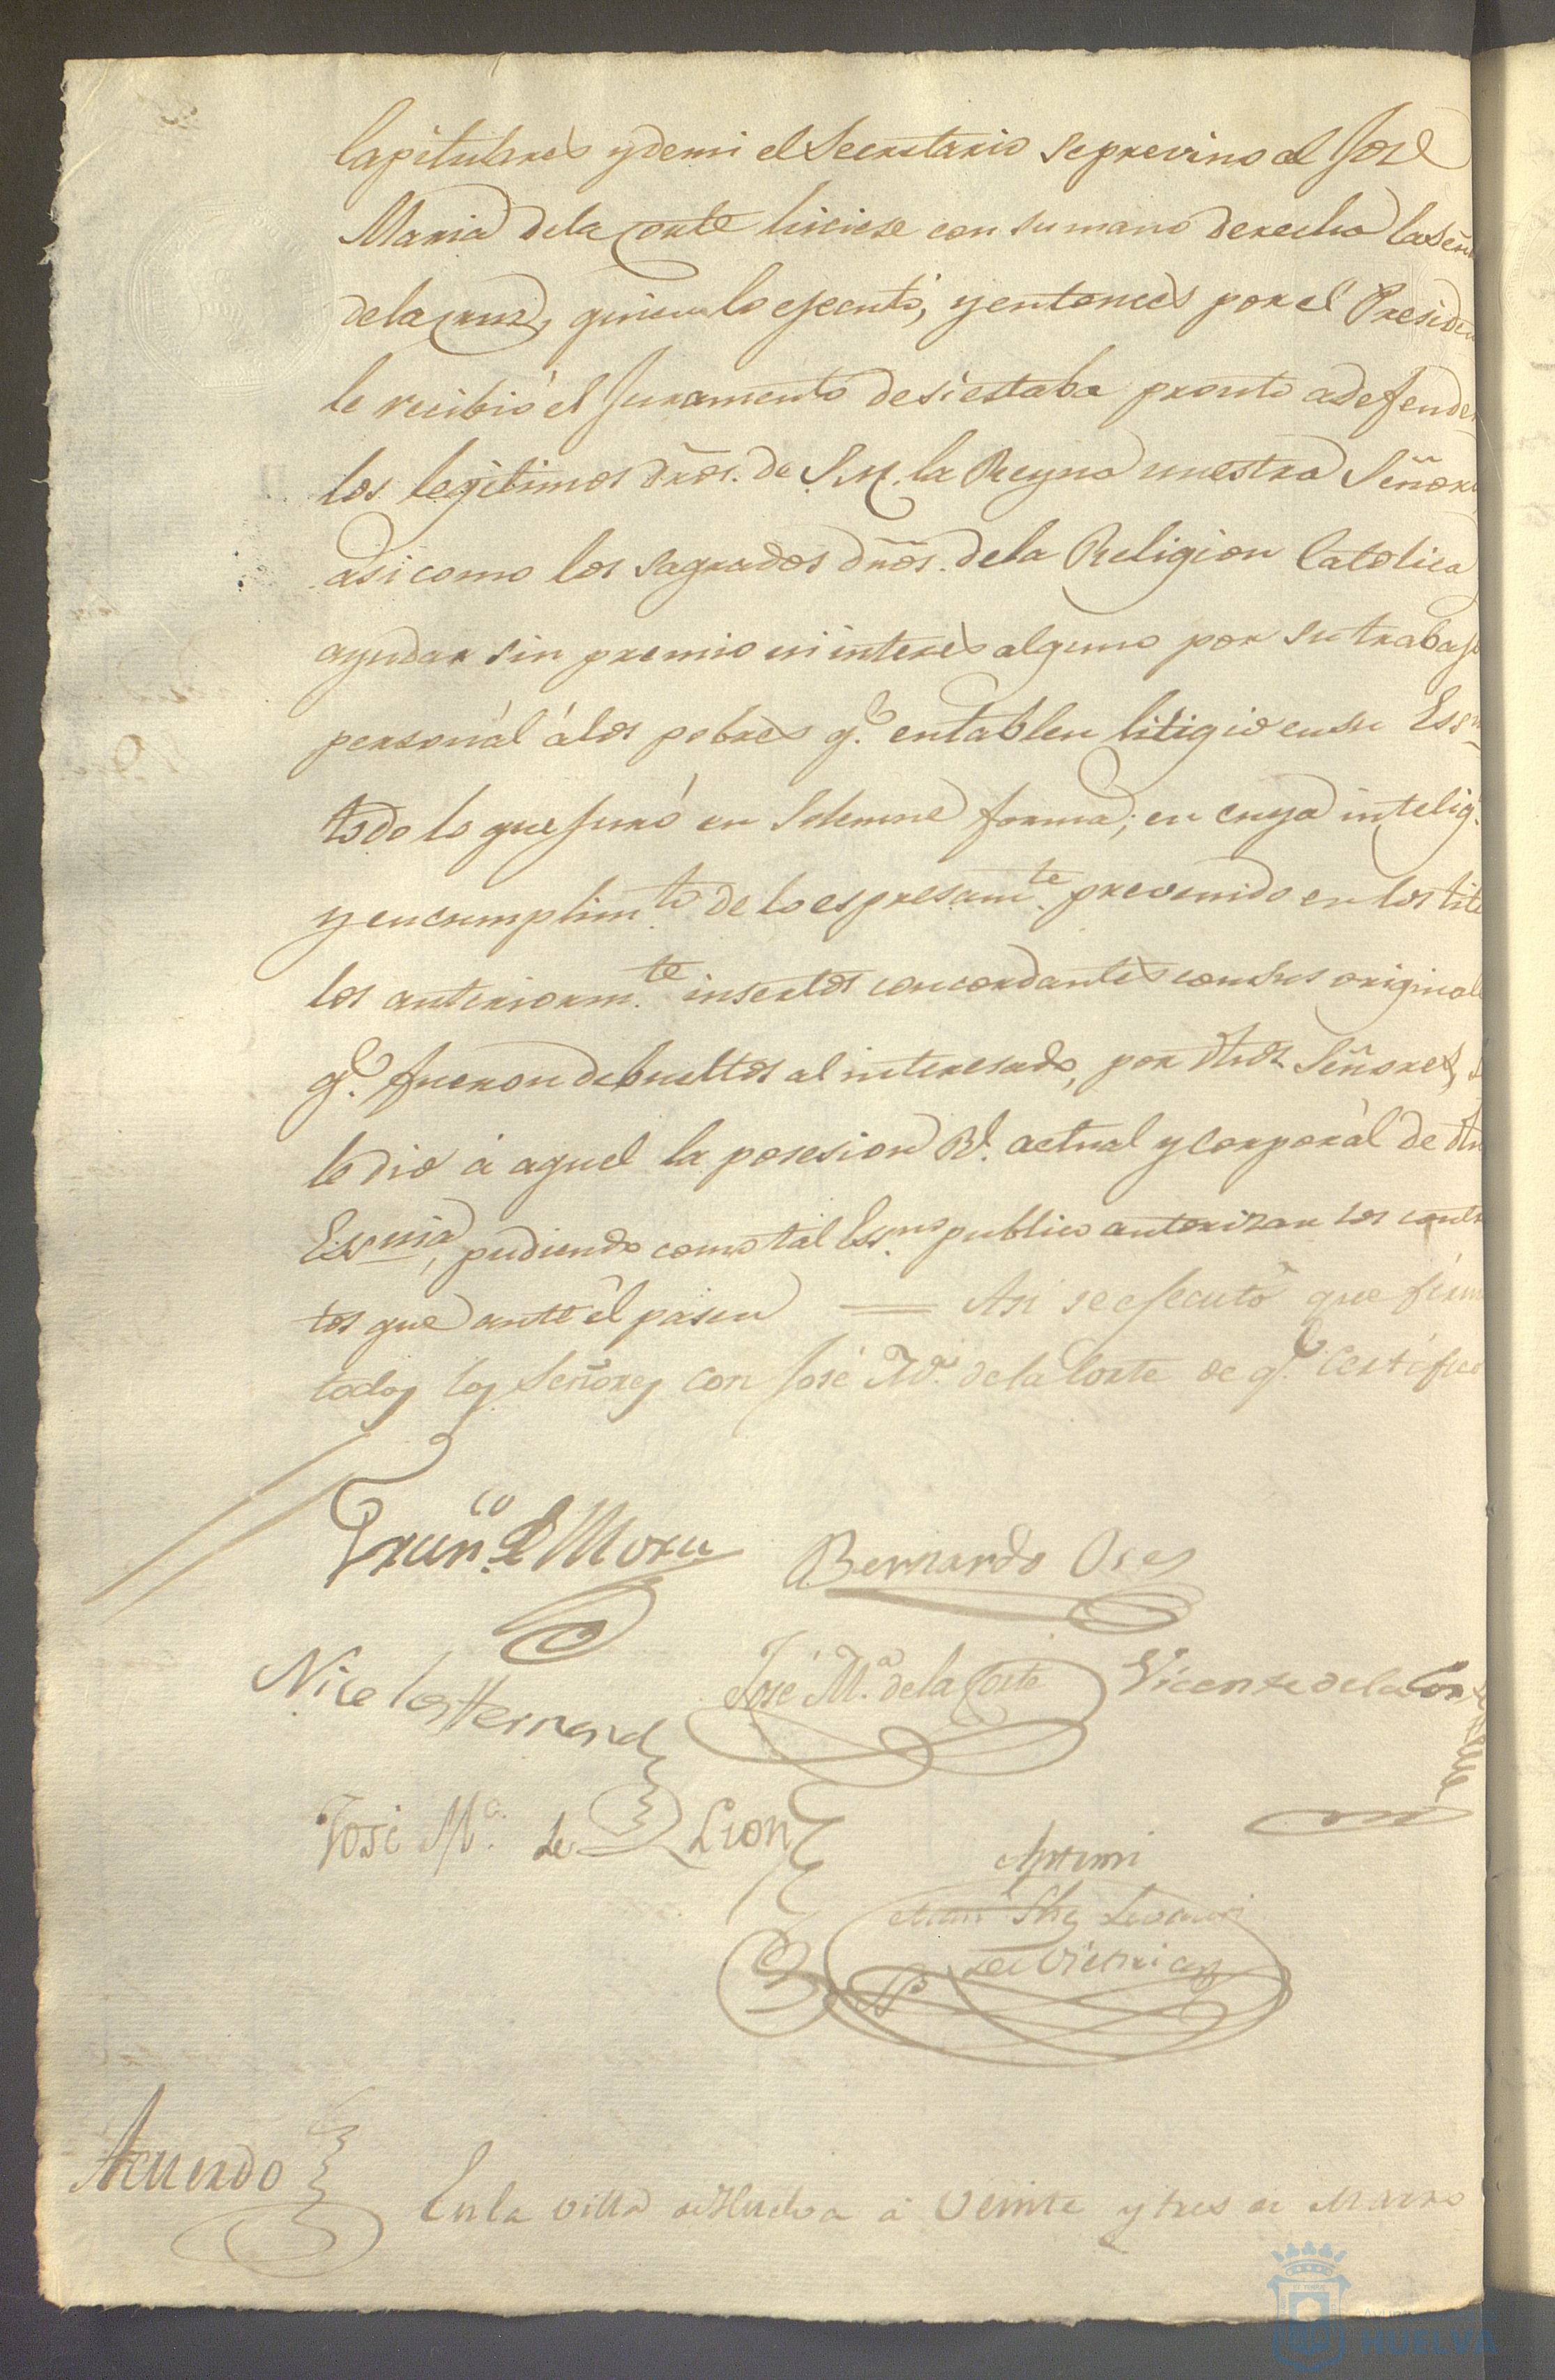 Capitulares y demi el Secretario se previno al José
Maria dela Corte hiciese con su mano derecha la Señ
dela cruz, quien lo ejecutó, y entonces por el Presiden
le recibió el Juramento de si estaba pronto a defender
los legitimos dr̃os. de S. M. la Reyna nuestra Señora
asi como los sagrados dr̃os. dela Religion Catolica
ayudar sin premio ni interes alguno por su trabajo
personál álos pobres q.e entablen litigio en su Esc
todo lo que juró en solemne forma; en cuya intelig.
y en cumplim.to de lo espresam.te prevenido en los titu
los anteriorm.te insertos concordantes con sus original
q.e fueron debueltos al interesado, por dhos Señores,
le dio á aquel la posesion Rl. actual y corporál de dh
Essnia, pudiendo como tal Ess.no publico autorizar los contra
tos que ante él pasen = Asi se ejecutó que firm
todos los Señores con José M.a dela Corte de q.e Certifico
Fran.co de Mora
Bernardo Oses
Nicolas Hernand
José M.a dela Corte
Vicente dela Corte
José M.a de Leon
Ante mi
Acuerdo
En la villa de Huelva á veinte y tres de Marzo
HUELVA